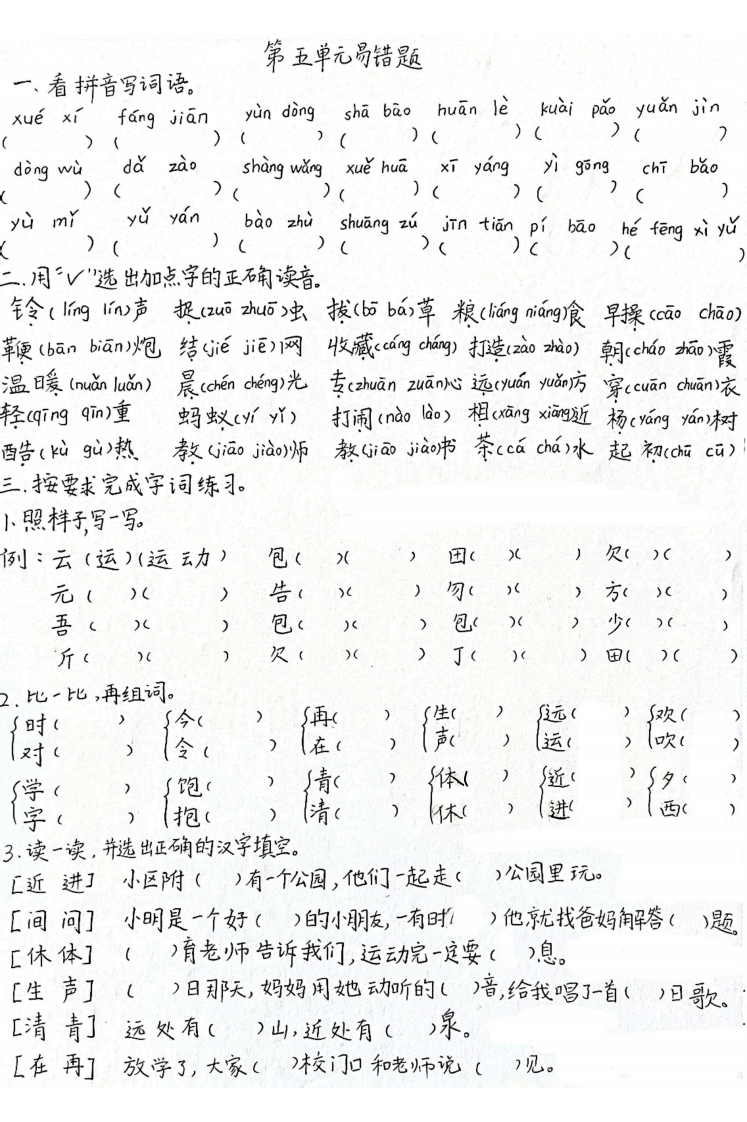 第五单元易错题
一、看拼音写词语。
xué xí fáng jiān yùn dòng shā bāo huān lè kuài pǎo yuǎn jìn
( ) ( ) ( ) ( ) ( ) ( ) ( )
dòng wù dǎ zào shàng wǎng xuě huā xī yáng yì gōng chī bǎo
( ) ( ) ( ) ( ) ( ) ( ) ( )
yù mǐ yǔ yán bào zhù shuāng zú jīn tiān pí bāo hé fēng xì yǔ
( ) ( ) ( ) ( ) ( ) ( ) ( )
二、用“√”选出加点字的正确读音。
铃(líng lín)声 捉(zuō zhuō)虫 拔(bō bá)草 粮(liáng niáng)食 早操(cāo chāo)
鞭(bān biān)炮 结(jié jiē)网 收藏(cáng cháng) 打造(zào zhào) 朝(cháo zhāo)霞
温暖(nuǎn luǎn) 晨(chén chéng)光 专(zhuān zuān)心 远(yuán yuǎn)方 穿(cuān chuān)衣
轻(qīng qīn)重 蚂蚁(yí yǐ) 打闹(nào lào) 相(xāng xiāng)近 杨(yáng yán)树
酷(kù gù)热 教(jiāo jiào)师 教(jiāo jiào)书 茶(cá chá)水 起初(chū cū)
三、按要求完成字词练习。
1、照样子,写一写。
例：云(运)(运动) 包( )( ) 田( )( ) 欠( )( )
元( )( ) 告( )( ) 勿( )( ) 方( )( )
吾( )( ) 包( )( ) 包( )( ) 少( )( )
斤( )( ) 欠( )( ) 丁( )( ) 田( )( )
2、比一比,再组词。
时( ) 今( ) 再( ) 生( ) 远( ) 欢( )
对( ) 令( ) 在( ) 声( ) 运( ) 吹( )
学( ) 饱( ) 青( ) 体( ) 近( ) 夕( )
字( ) 抱( ) 清( ) 休( ) 进( ) 西( )
3、读一读,并选出正确的汉字填空。
[近 进] 小区附( )有一个公园,他们一起走( )公园里玩。
[间 问] 小明是一个好( )的小朋友,一有时( )他就找爸妈解答( )题。
[休 体] ( )育老师告诉我们,运动完一定要( )息。
[生 声] ( )日那天,妈妈用她动听的( )音,给我唱了一首( )日歌。
[清 青] 远处有( )山,近处有( )泉。
[在 再] 放学了,大家( )校门口和老师说( )见。